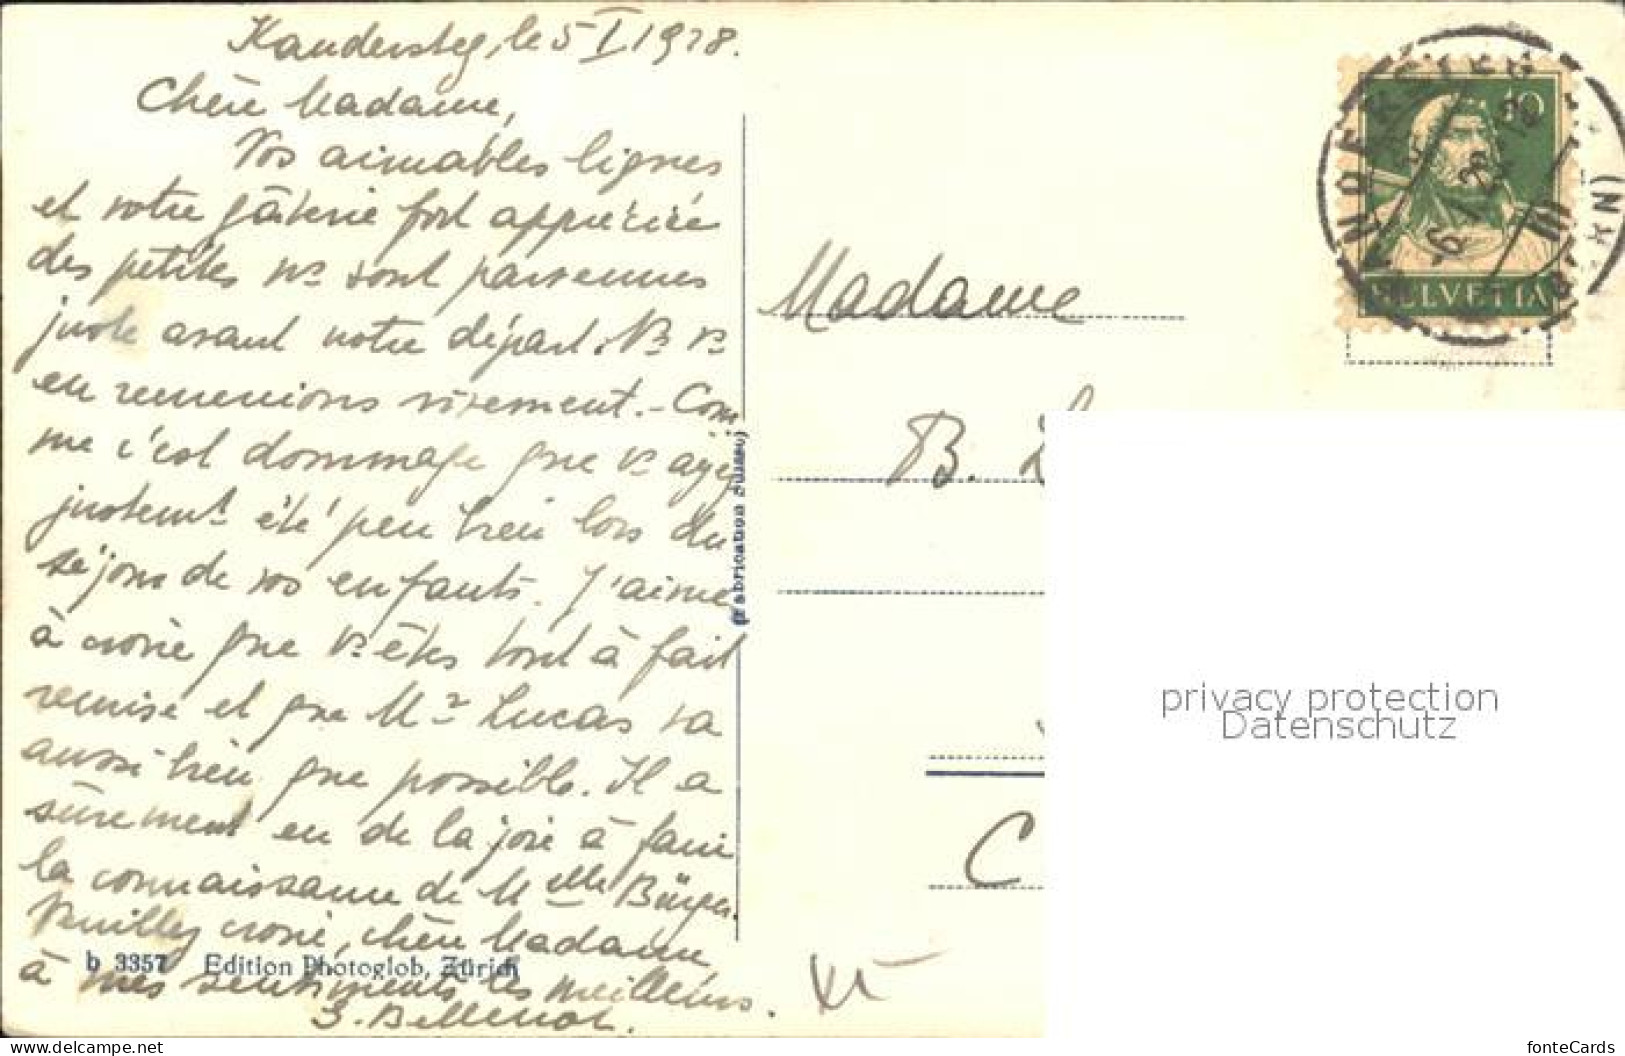 Kandersteg, le 5 I 1928.
Chère Madame,
Vos aimables lignes
et votre gâterie fort appréciée
des petites ns sont parvenues
juste avant notre départ. Ns vs
en remercions vivement. - Com
me c'est dommage que vs ayez
justemt été peu bien lors du
séjour de vos enfants. J'aime
à croire que vs êtes tout à fait
remise et que Mr Lucas va
aussi bien que possible. Il a
sûrement eu de la joie à faire
la connaissance de Melle Bürger.
Veuillez croire, chère Madame
à mes sentiments les meilleurs.
S. Bellenot.
b 3357 Edition Photoglob, Zürich
(Fabrication suisse)
Madame
B. L
C
KANDERSTEG
(BERN)
6. I. 28
10
HELVETIA
privacy protection
Datenschutz
www.delcampe.net
fonteCards